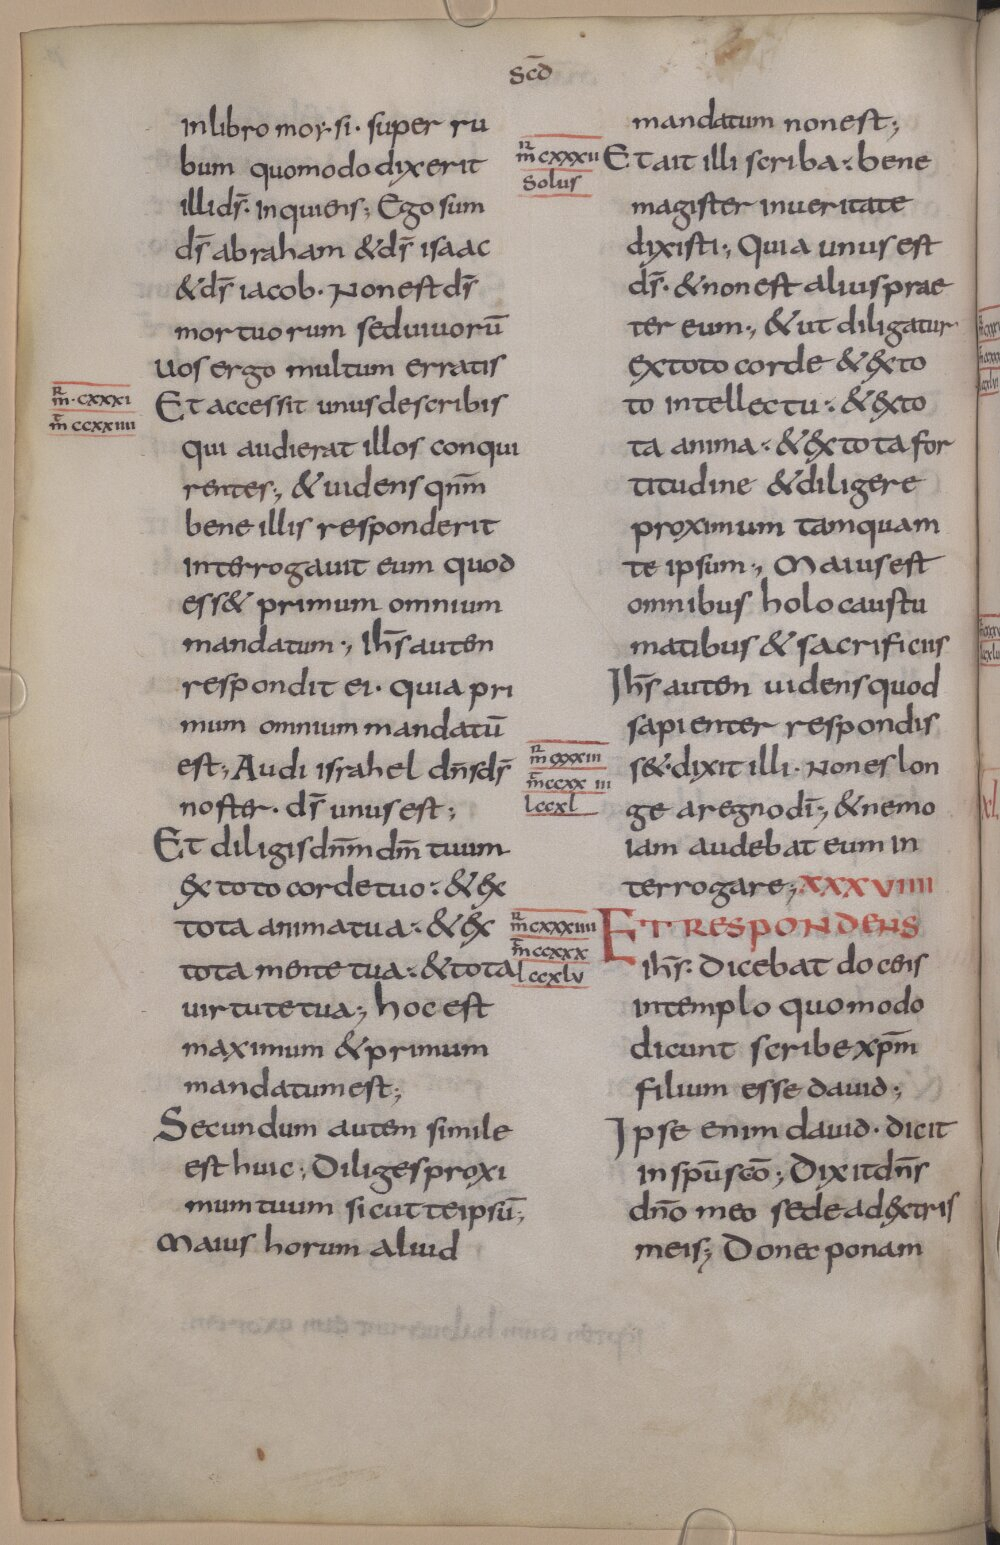 scd̄
in libro moysi· super ru
bum quomodo dixerit
illi ds̄· inquiens; Ego sum
ds̄ abraham & ds̄ isaac
& ds̄ iacob· Non est ds̄
mortuorum sed uiuorū
uos ergo multum erratis
m̄·cxxxi
m̄ ccxxiiii
Et accessit unus de scribis
qui audierat illos conqui
rentes; & uidens qnm̄
bene illis responderit
interrogauit eum quod
ess& primum omnium
mandatum·; Ihs̄ autem
respondit ei· quia pri
mum omnium mandatū
est; Audi israhel dn̄s ds̄
noster· ds̄ unus est;
Et diligis dnm̄ dm̄ tuum
ex toto corde tuo·: & ex
tota anima tua·: & ex
tota mente tua·: & tota
uirtute tua; hoc est
maximum & primum
mandatum est;
Secundum autem simile
est huic; Diliges proxi
mum tuum sicut te ipsū;
Maius horum aliud
mandatum non est;
m̄ cxxxii
Solus
Et ait illi scriba·: bene
magister in ueritate
dixisti·; Quia unus est
ds̄· & non est alius prae
ter eum·; & ut diligatur
ex toto corde & ex to
to intellectu·: & ex to
ta anima·: & ex tota for
titudine & diligere
proximum tamquam
te ipsum·; Maius est
omnibus holocaustu
matibus & sacrificiis
Ihs̄ autem uidens quod
sapienter respondis
m̄ cxxxiii
m̄ ccxx iii
lccxl
s&· dixit illi· Non es lon
ge a regno dī; & nemo
iam audebat eum in
terrogare; xxxviiii
m̄ cxxxiiii
m̄ ccxxx
lccxlv
Et respondens
ihs̄· dicebat docens
in templo quomodo
dicunt scribe xpm̄
filium esse dauid;
Ipse enim dauid· dicit
in spū scō; Dixit dn̄s
dn̄o meo sede ad dextris
meis; Donec ponam